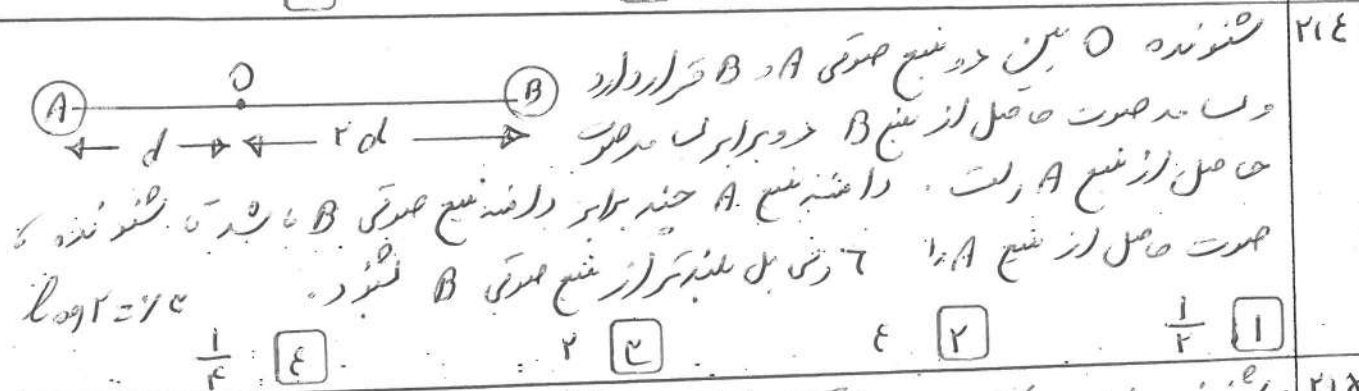 ۲۱٤
شنونده O بین دو منبع صوتی A و B قرار دارد
A O B
و بسامد صوت حاصل از منبع B دو برابر بسامد صوت
d ۲d
حاصل از منبع A است. دامنه منبع A چند برابر دامنه منبع صوتی B باشد تا شنونده
صوت حاصل از منبع A را ٦ دسی بل بلندتر از منبع صوتی B بشنود.
log۲=٪۳
۱ ۱/۲ ۲ ٤ ۳ ۲ ٤ ۱/۴
۲۱۵